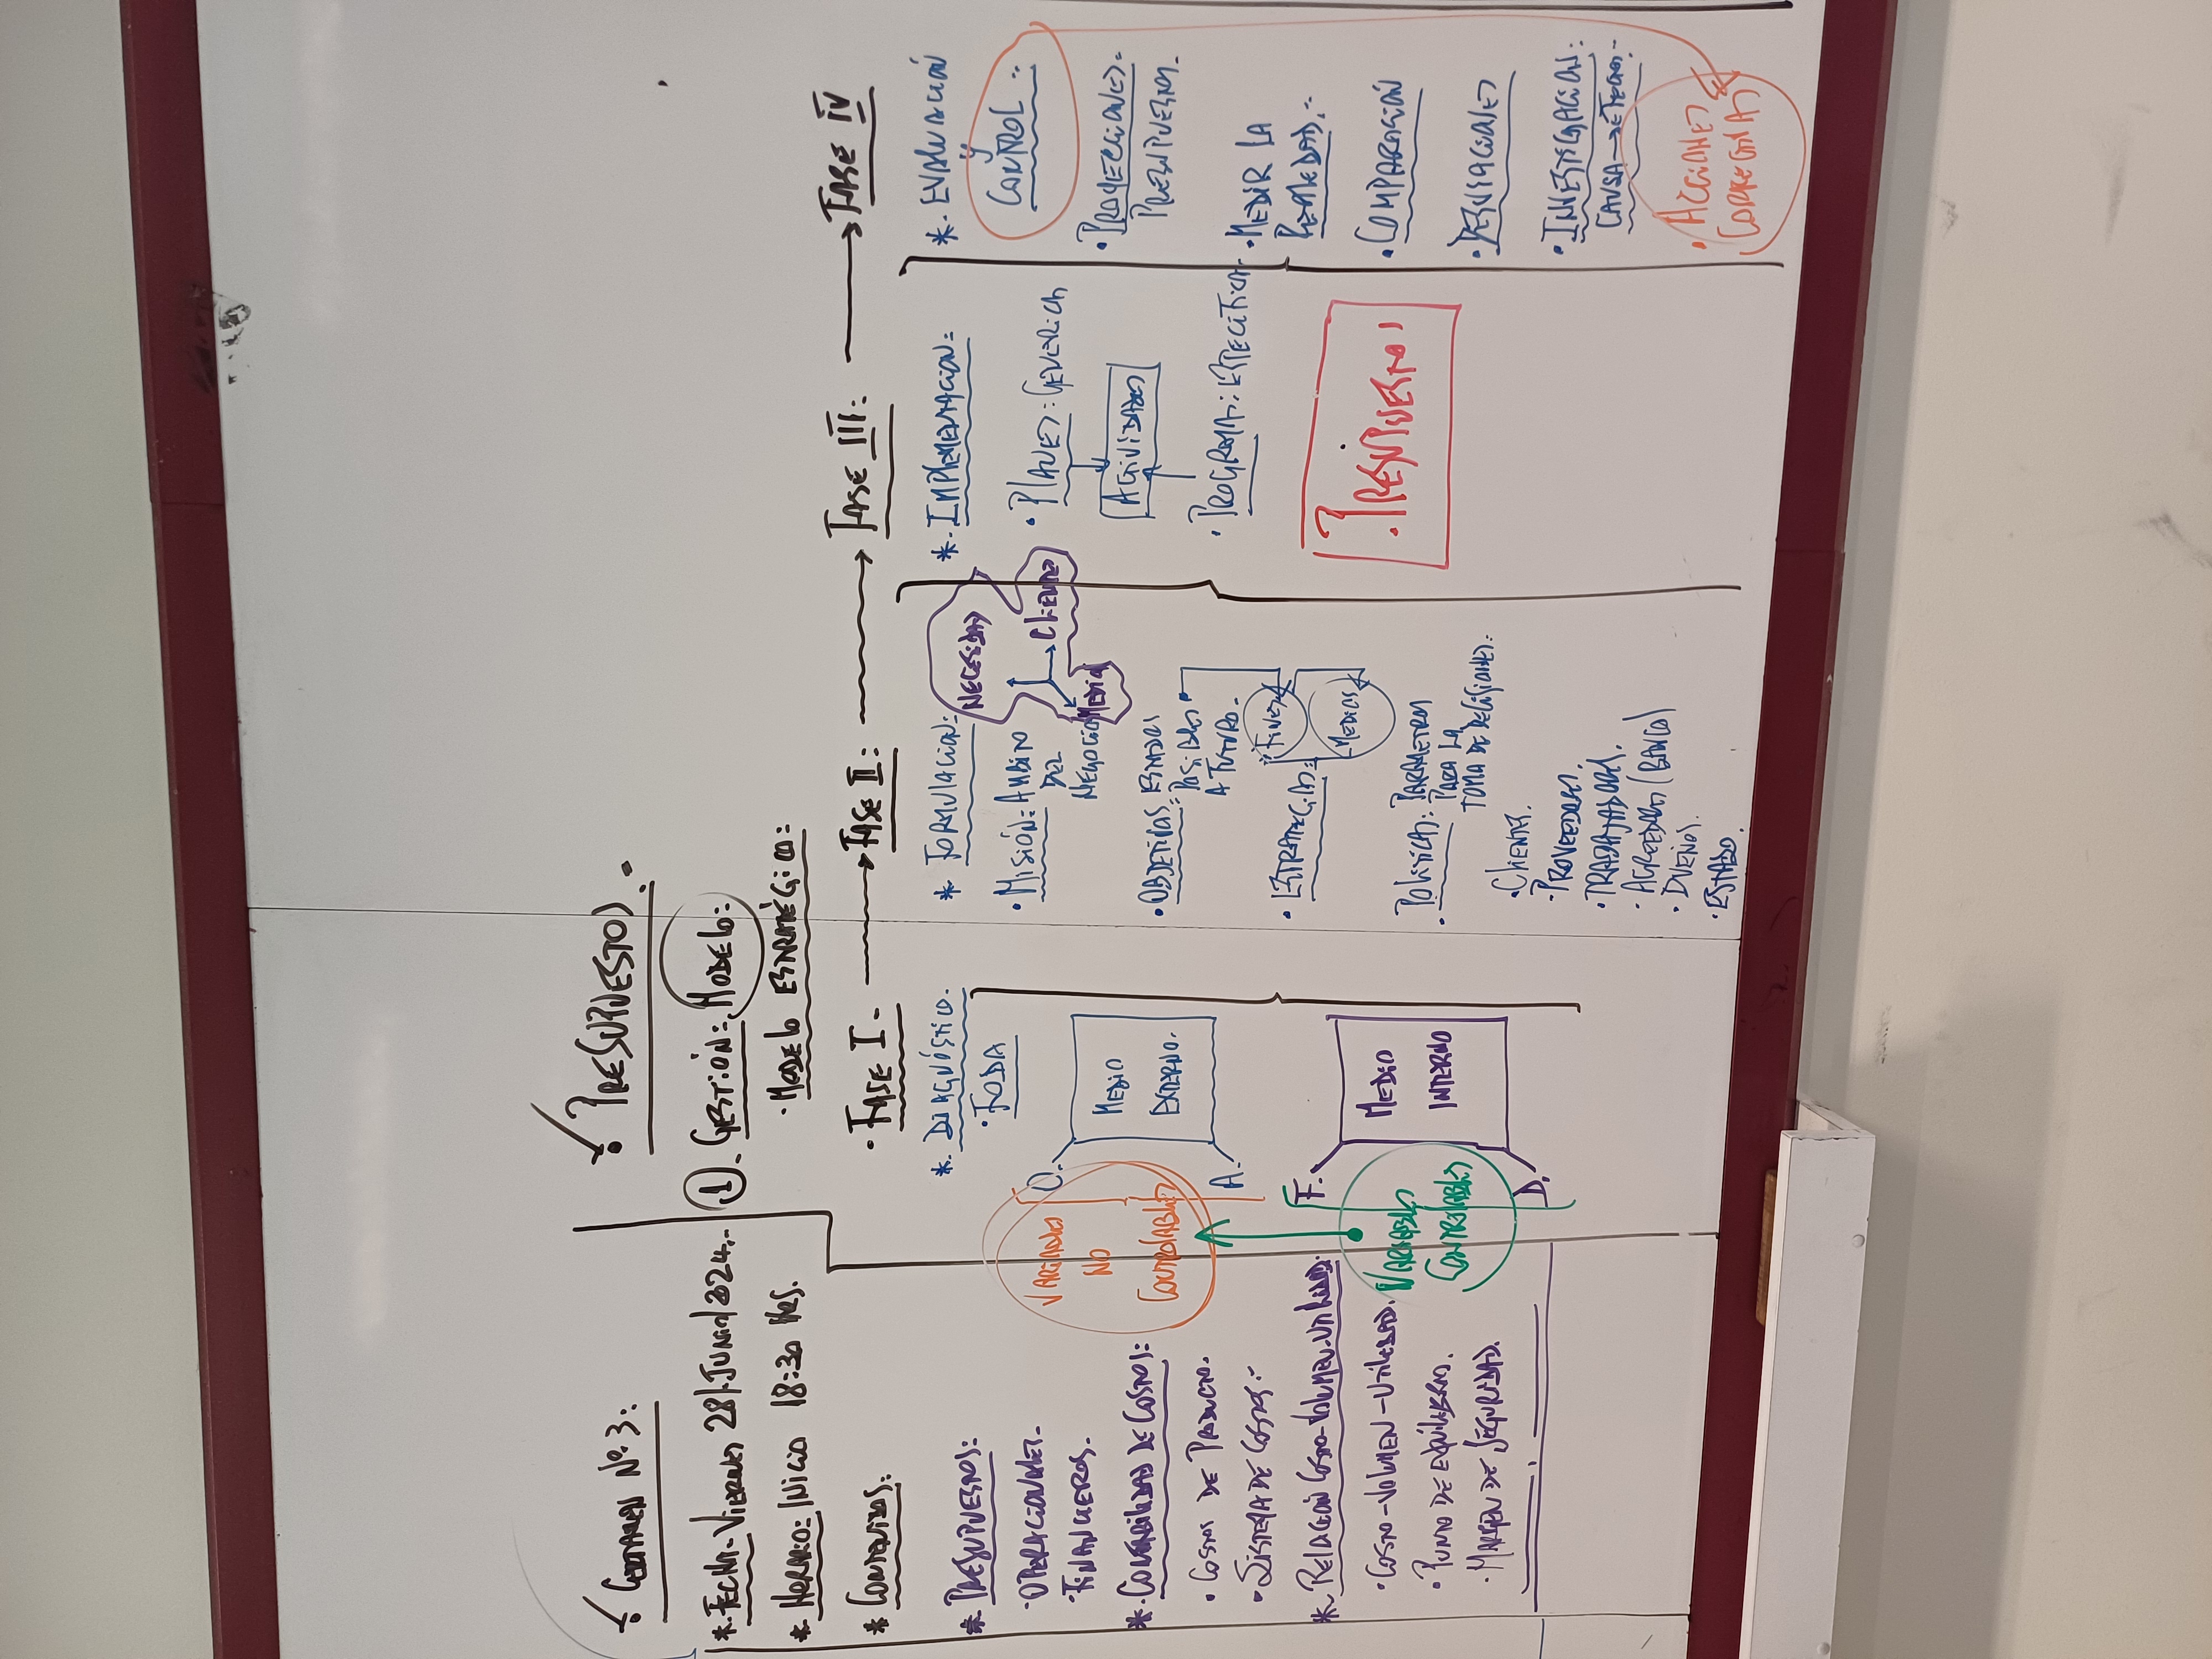 Certamen Nº 3:
*. Fecha- Viernes 28/Junio/2024.-
*. Horario: Inicio 18:30 Hrs.
* Contenidos:
*. Presupuestos:
·Operacionales.-
·Financieros.-
*. Contabilidad de Costos:
· Costos de Producto.-
· Sistema de Costos.-
*. Relación Costo-Volumen-Utilidad:
· Costo-Volumen-Utilidad.
· Punto de Equilibrio.
· Margen de Seguridad.
Presupuestos.-
1. Gestión: Modelo:
· Modelo Estratégico:
· Fase I.-
*. Diagnóstico.
· FODA
Variables
No
Controlables
O.
A.
Medio
Externo.
F.
D.
Medio
Interno
Variables
Controlables
Fase II:
* Formulación:
· Misión: Ambito
del
Negocio
Necesidad
Clientes
Medio
· Objetivos: Estados
Posibles
a Futuro.
· Estrategias:
Fines
Medios
· Políticas: Parametros
para la
toma de decisiones.-
· Clientes.
· Proveedores.
· Trabajadores.
· Acreedores (Banco)
· Dueños.
· Estado.
Fase III:
*. Implementación:
· Planes: Genericos
Actividades
· Programas: Específicas
Presupuestos
Fase IV
*. Evaluación
y
Control :-
· Proyecciones:
Presupuestos.
· Medir la
Realidad.-
· Comparación
· Desviaciones
· Investigación:
Causa → Efecto.-
· Acciones
Correctivas